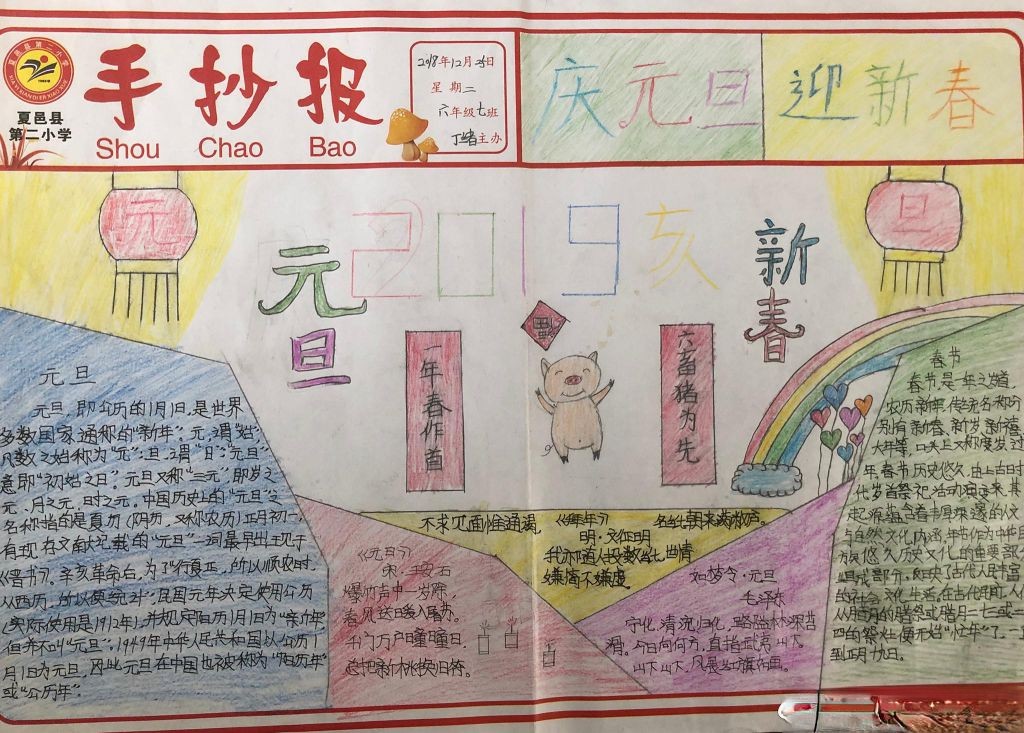 夏邑县
第二小学
手抄报
Shou Chao Bao
2018年12月25日
星期二
六年级七班
主办
庆元旦 迎新春
元
旦
2019亥
元旦
新春
福
一年春作首
六畜猪为先
元旦
元旦,即公历的1月1日,是世界
多数国家通称的“新年”。元,谓“始”,
凡数之始称为“元”;旦,谓“日”;“元旦”
意即“初始之日”。元旦又称“三元”,即岁之
元、月之元、时之元。中国历史上的“元旦”之
名称指的是夏历(阴历,又称农历)正月初一
有现在文献记载的“元旦”一词最早出现于
《晋书》。辛亥革命后,为了“行夏正,所以顺农时,
从西历,所以便统计”,民国元年决定使用公历
(实际使用是1912年),并规定阳历1月1日为“新年”
但并不叫“元旦”。1949年中华人民共和国以公历1
月1日为元旦,因此元旦在中国也被称为“阳历年”
或“公历年”。
《元日》
宋·王安石
爆竹声中一岁除,
春风送日暖入屠苏。
千门万户曈曈日,
总把新桃换旧符。
《拜年》
明·文征明
不求见面惟通谒,
名纸朝来满敝庐。
我亦随人投数纸,世情
嫌简不嫌虚
如梦令·元旦
毛泽东
宁化、清流、归化,路隘林深苔
滑。今日向何方,直指武夷山下。
山下山下,风展红旗如画。
春节
春节,是一年之岁首,
农历新年,传统名称分
别有新春、新岁、新禧、
大年等,口头上又称度岁、过
年。春节历史悠久,由上古时
代岁首祭祀活动演变来,其
起源蕴含着
文化内涵
族悠久历史文化的重要部
组成部分,反映了古代人民丰富
的社会文化生活。在古代民间,人们
从腊月的腊祭或腊月二十三或二十
四的祭灶便开始“忙年”了,
到正月十九日。